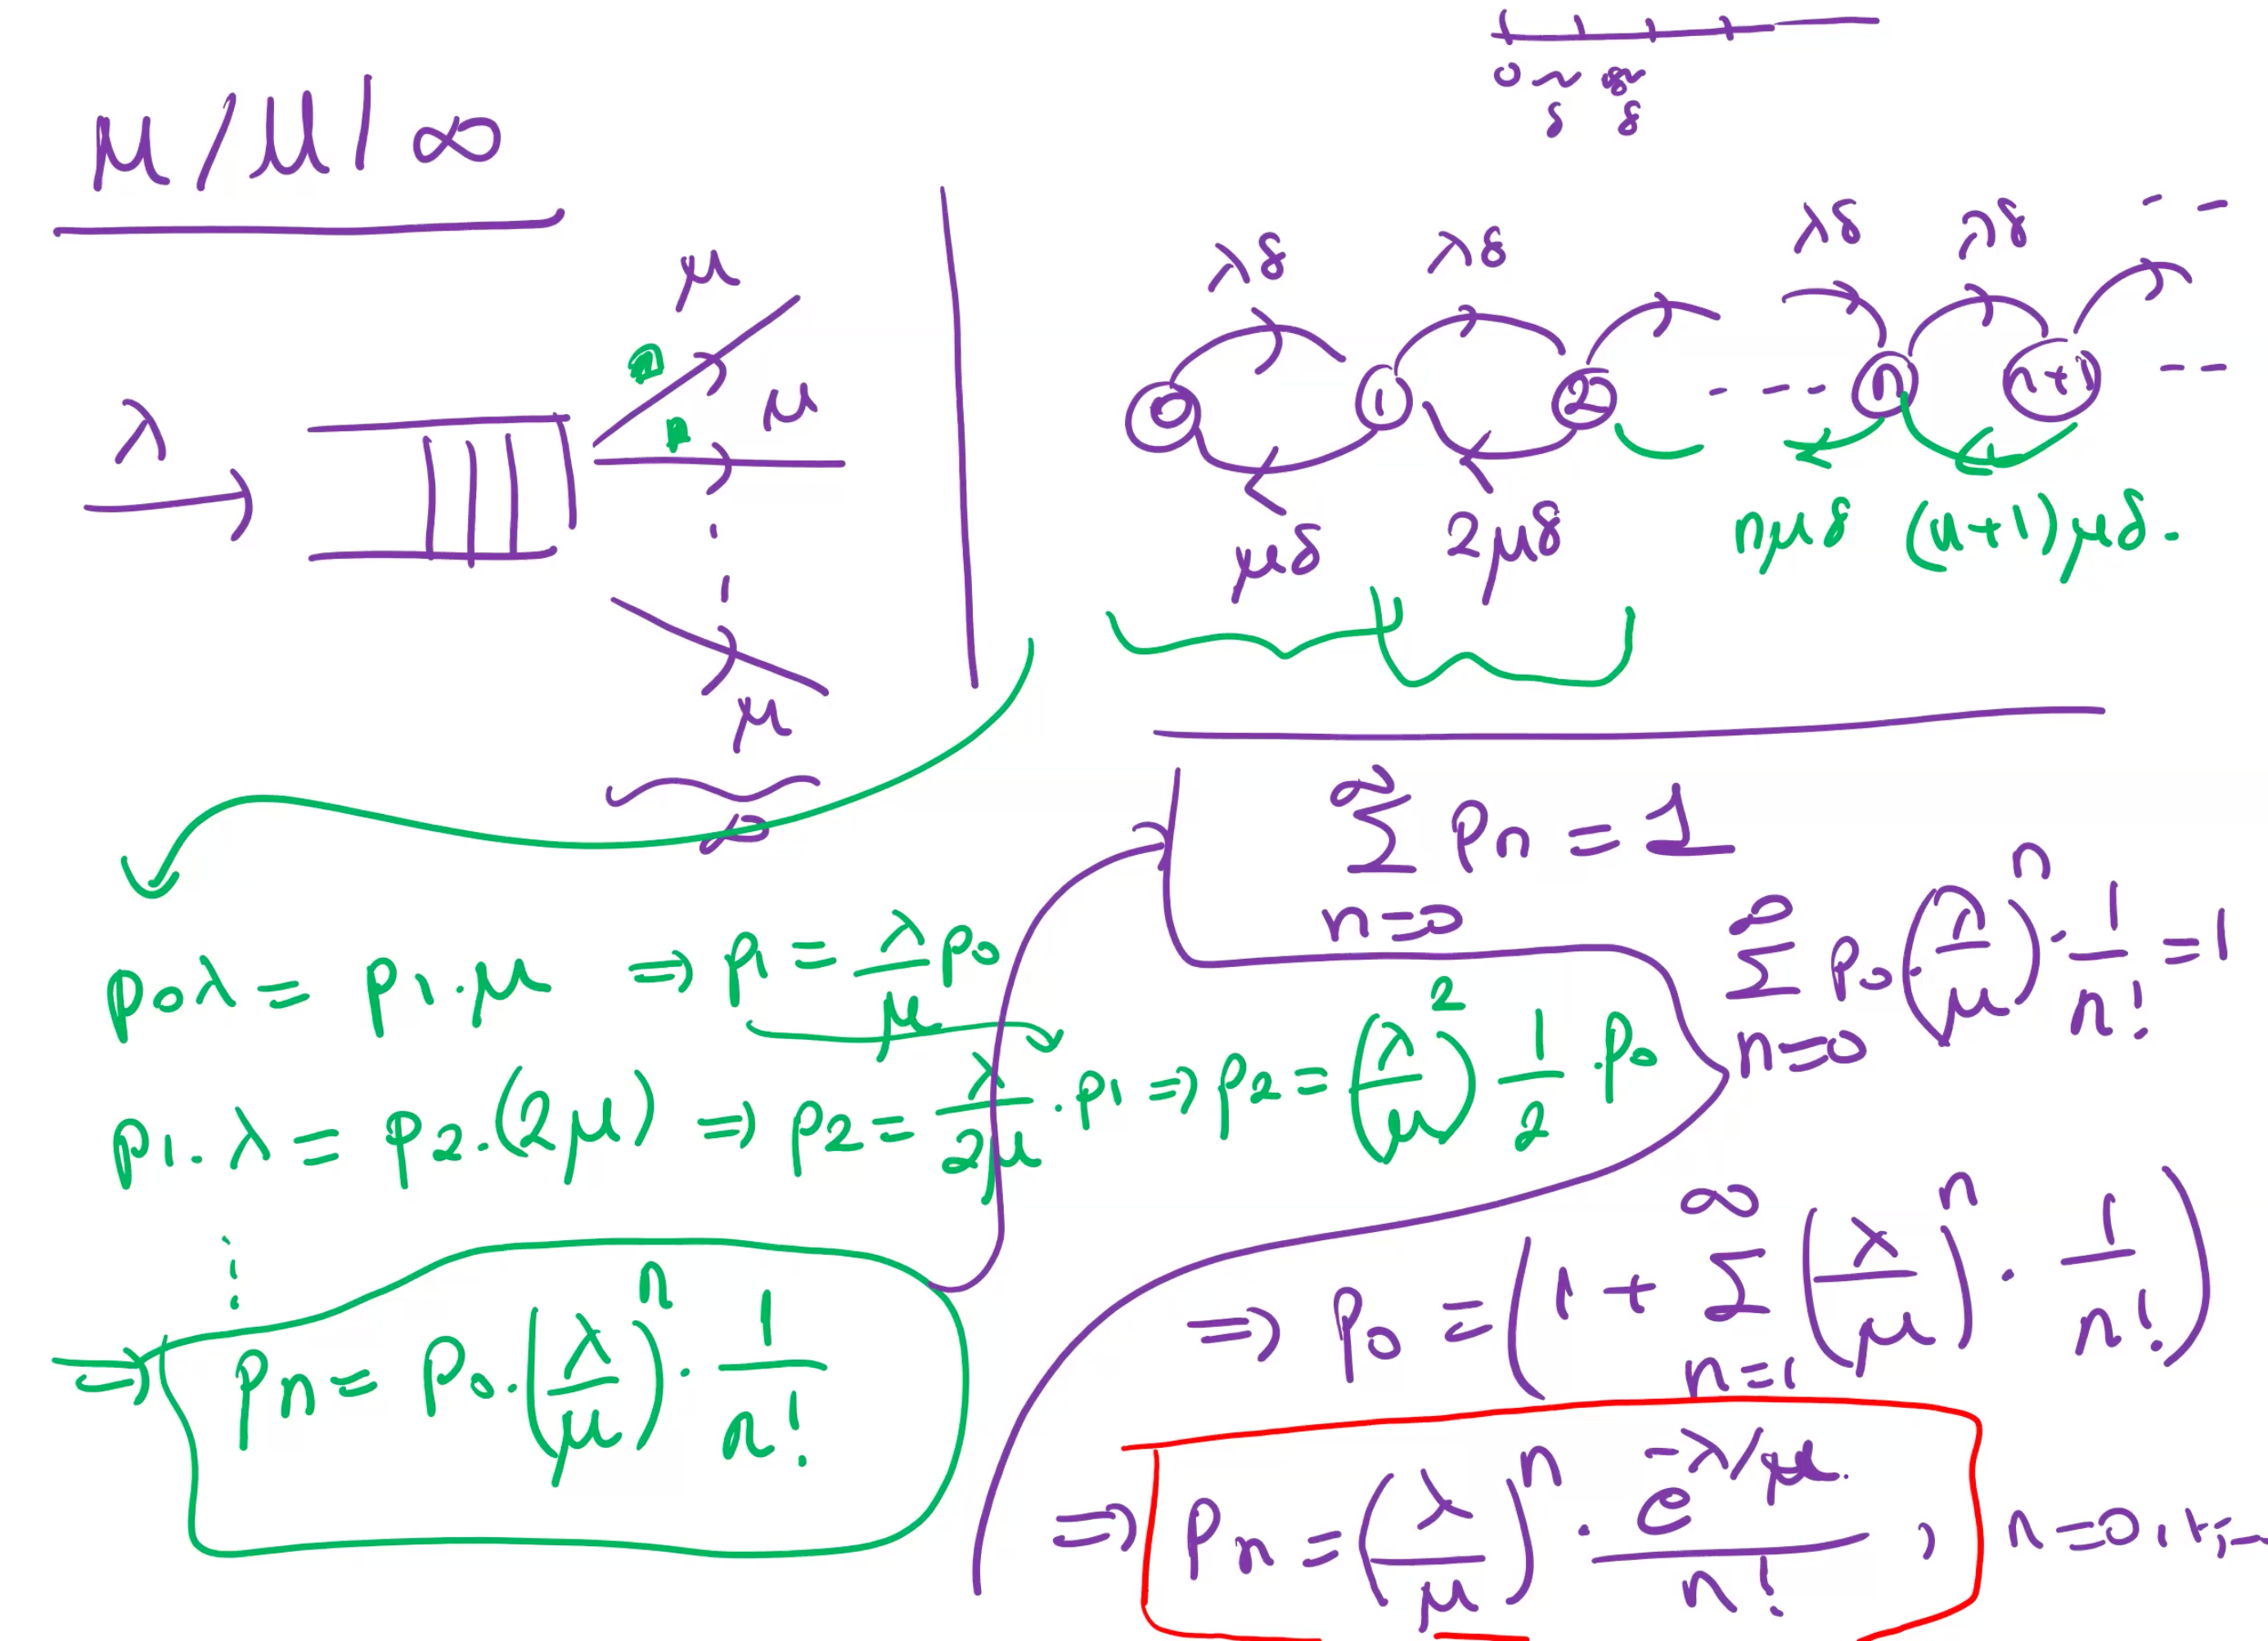 M/M/∞
0 δ 2δ
λ
μ
2
1
μ
μ
∞
λδ λδ λδ λδ - -
0 1 2 - - - n n+1 - -
μδ 2μδ nμδ (n+1)μδ -
p0 λ = p1 . μ ⇒ p1 = λ/μ p0
p1 . λ = p2 . (2μ) ⇒ p2 = λ/2μ . p1 ⇒ p2 = (λ/μ)^2 1/2 . p0
⋮
⇒ pn = p0 . (λ/μ)^n . 1/n!
∑_{n=0}^{∞} pn = 1
∑_{n=0}^{∞} p0 (λ/μ)^n . 1/n! = 1
⇒ p0 = (1 + ∑_{n=1}^{∞} (λ/μ)^n . 1/n!)
⇒ pn = (λ/μ)^n . e^{-λ/μ}/n! , n = 0, 1, --